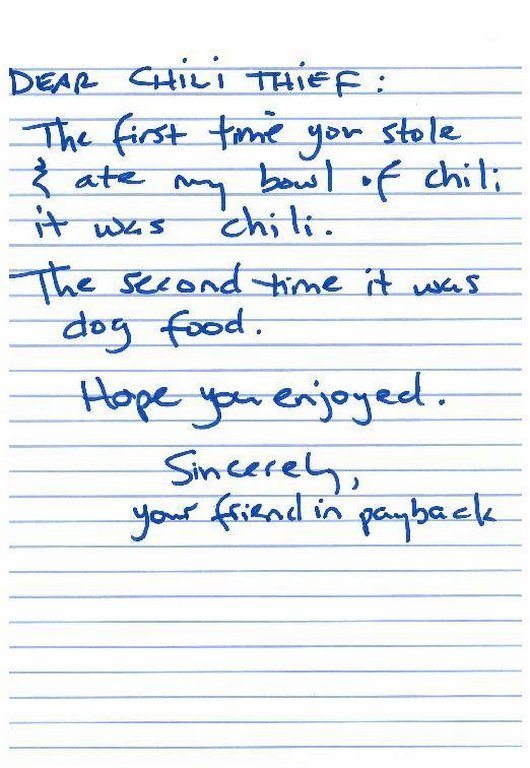 DEAR CHILI THIEF:
The first time you stole
& ate my bowl of chili
it was chili.
The second time it was
dog food.
Hope you enjoyed.
Sincerely,
your friend in payback